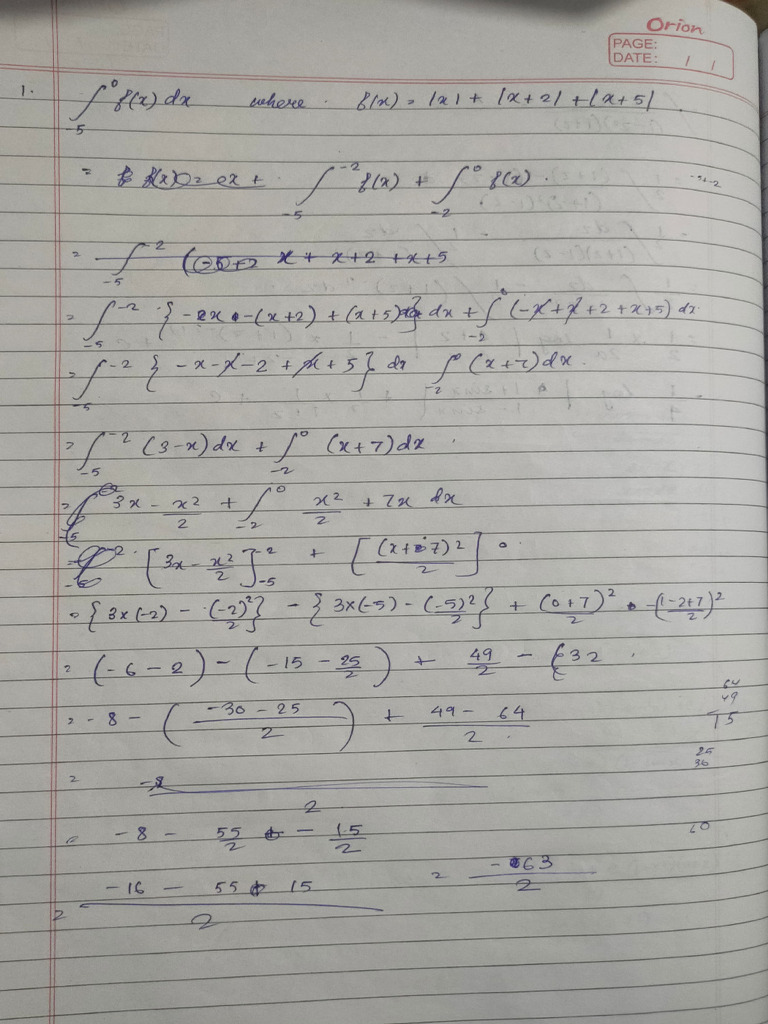 Orion
PAGE:
DATE: / /
1. ∫₋₅⁰ f(x) dx where f(x) = |x| + |x+2| + |x+5|
= ∫₋₅⁻² f(x) + ∫₋₂⁰ f(x).
= ∫₋₅⁻² x + x+2 + x+5
= ∫₋₅⁻² {-x -(x+2) + (x+5)} dx + ∫₋₂⁰ (-x+x+2+x+5) dx
= ∫₋₅⁻² {-x-x-2+x+5} dx ∫₋₂⁰ (x+7) dx.
= ∫₋₅⁻² (3-x) dx + ∫₋₂⁰ (x+7) dx
= 3x - x²/2 + ∫₋₂⁰ x²/2 + 7x dx
= [3x - x²/2]₋₅⁻² + [(x+7)²/2] 0
= {3x(-2) - (-2)²/2} - {3x(-5) - (-5)²/2} + (0+7)²/2 - (1-2+7)²/2
= (-6-2) - (-15 - 25/2) + 49/2 - 32
64
49
15
= -8 - ((-30-25)/2) + (49-64)/2
25
36
= -8
2
= -8 - 55/2 - 15/2
10
= (-16 - 55 15)/2 = -63/2